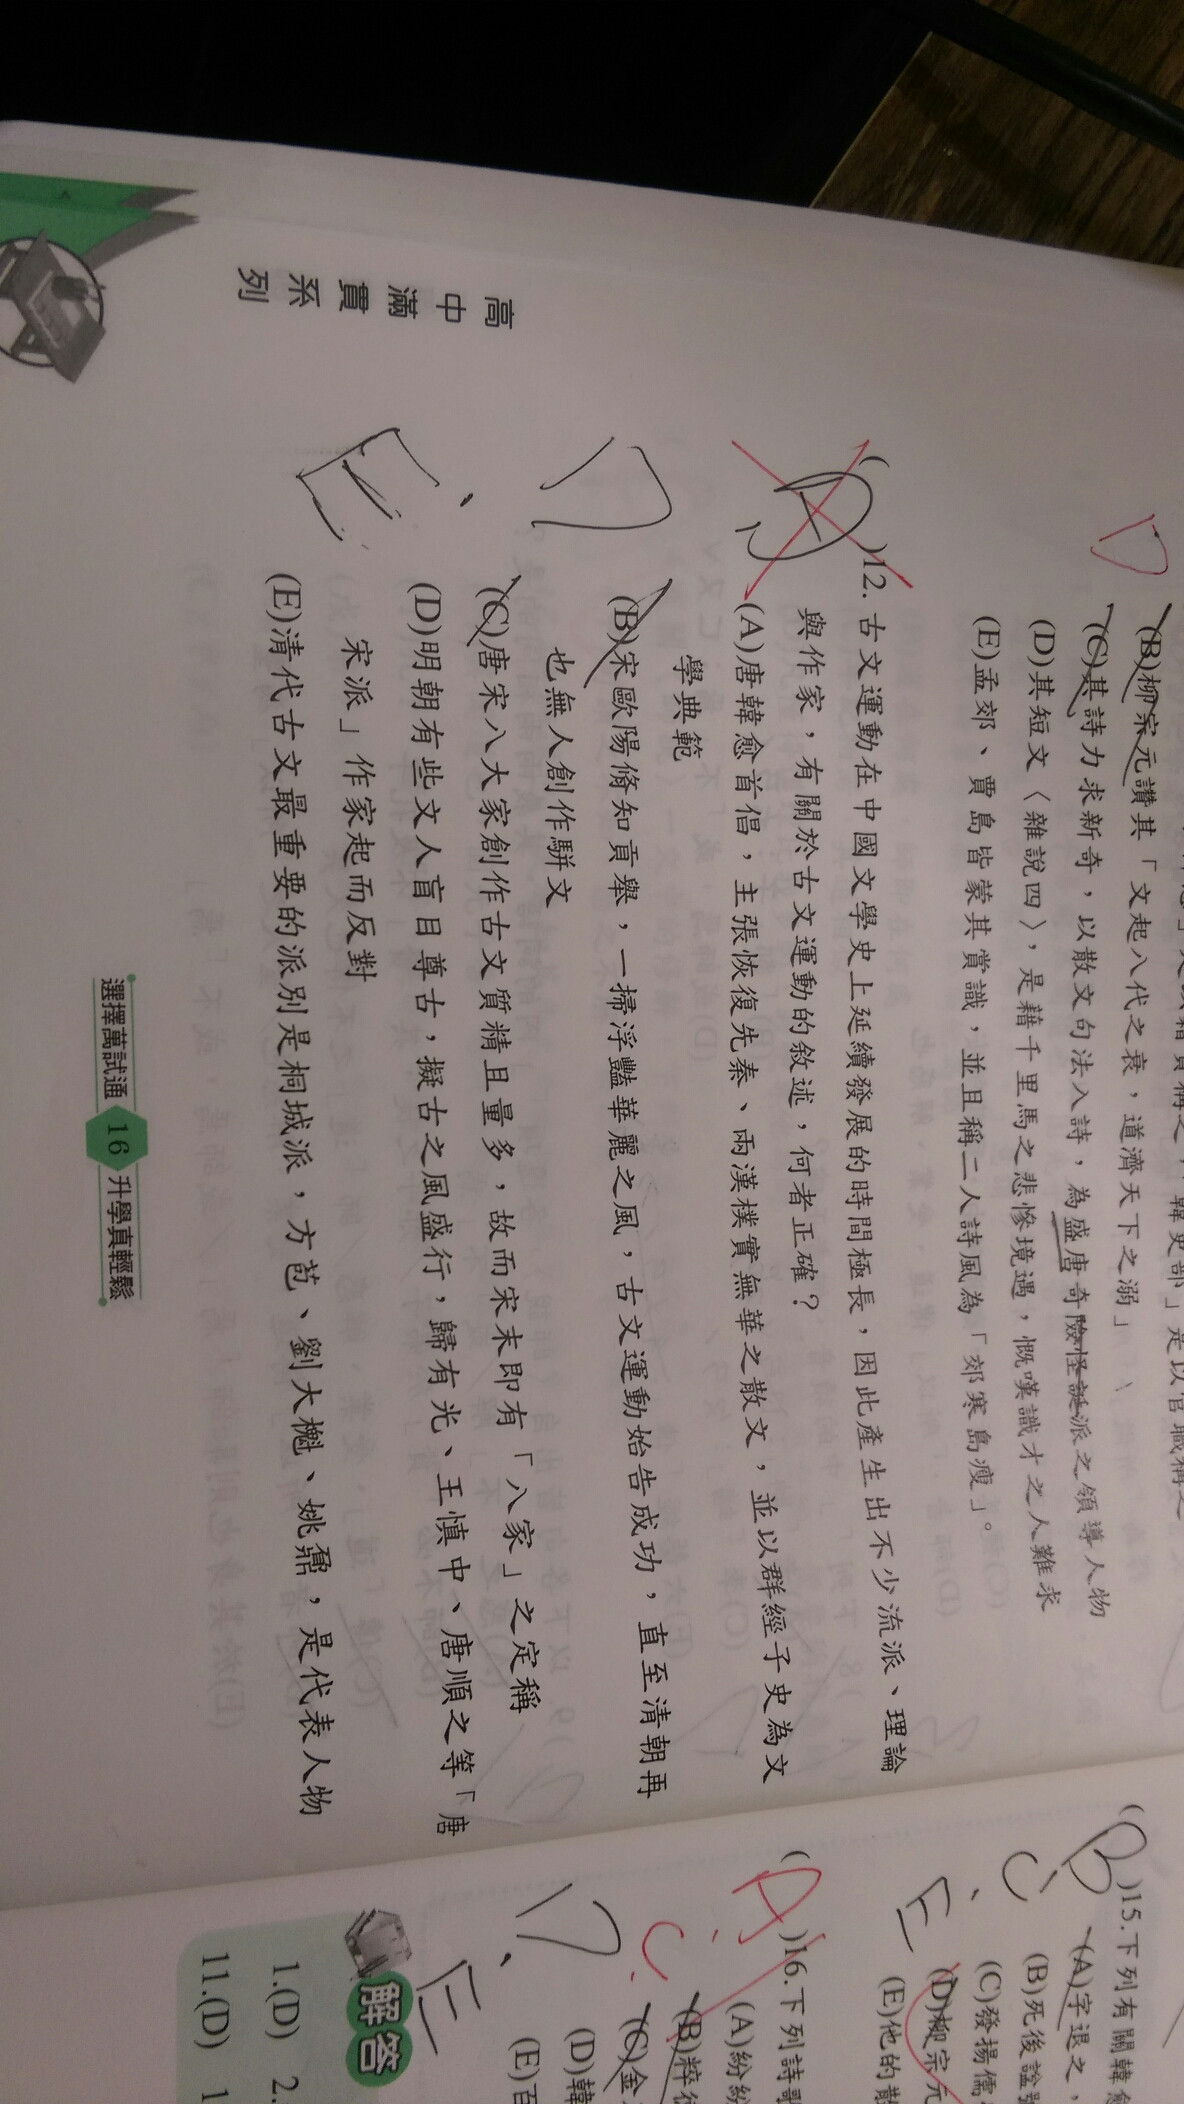 (B)柳宗元讚其「文起八代之衰，道濟天下之溺」
(C)其詩力求新奇，以散文句法入詩，為盛唐奇險怪誕派之領導人物
(D)其短文〈雜說四〉，是藉千里馬之悲慘境遇，慨嘆識才之人難求
(E)孟郊、賈島皆蒙其賞識，並且稱二人詩風為「郊寒島瘦」。
( A )12.古文運動在中國文學史上延續發展的時間極長，因此產生出不少流派、理論
與作家，有關於古文運動的敘述，何者正確？
(A)唐韓愈首倡，主張恢復先秦、兩漢樸實無華之散文，並以群經子史為文
學典範
(B)宋歐陽脩知貢舉，一掃浮豔華麗之風，古文運動始告成功，直至清朝再
也無人創作駢文
(C)唐宋八大家創作古文質精且量多，故而宋末即有「八家」之定稱
(D)明朝有些文人盲目尊古，擬古之風盛行，歸有光、王慎中、唐順之等「唐
宋派」作家起而反對
(E)清代古文最重要的派別是桐城派，方苞、劉大櫆、姚鼐，是代表人物
D
、
E
D
高中滿貫系列
選擇萬試通 16 升學真輕鬆
( B )15.下列有關韓愈
C
、
E
(A)字退之，
(B)死後諡號
(C)發揚儒
(D)柳宗元
(E)他的散
( A )16.下列詩歌
C
D
、
E
(A)紛紛
(B)粹
(C)金
(D)韓
(E)百
解答
1.(D) 2.
11.(D) 1